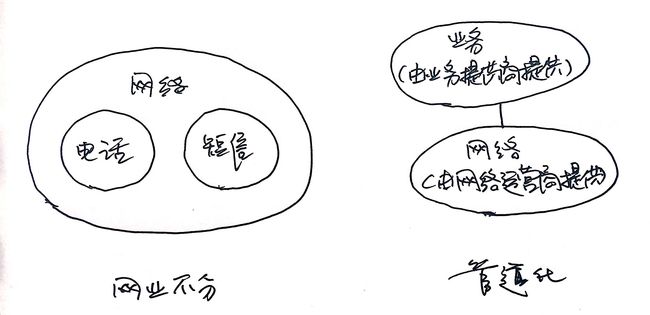 网络
电话
短信
网业不分
业务
(由业务提供商提供)
网络
(由网络运营商提供)
管道化